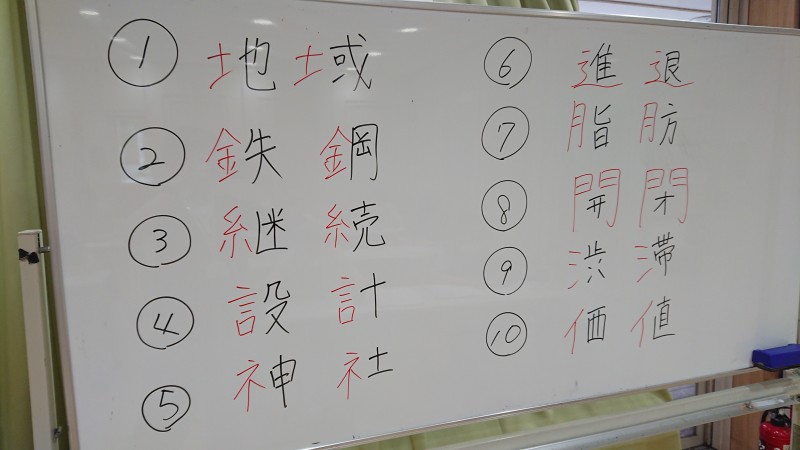 ① 地域
② 鉄鋼
③ 継続
④ 設計
⑤ 神社
⑥ 進退
⑦ 脂肪
⑧ 開閉
⑨ 渋滞
⑩ 価値